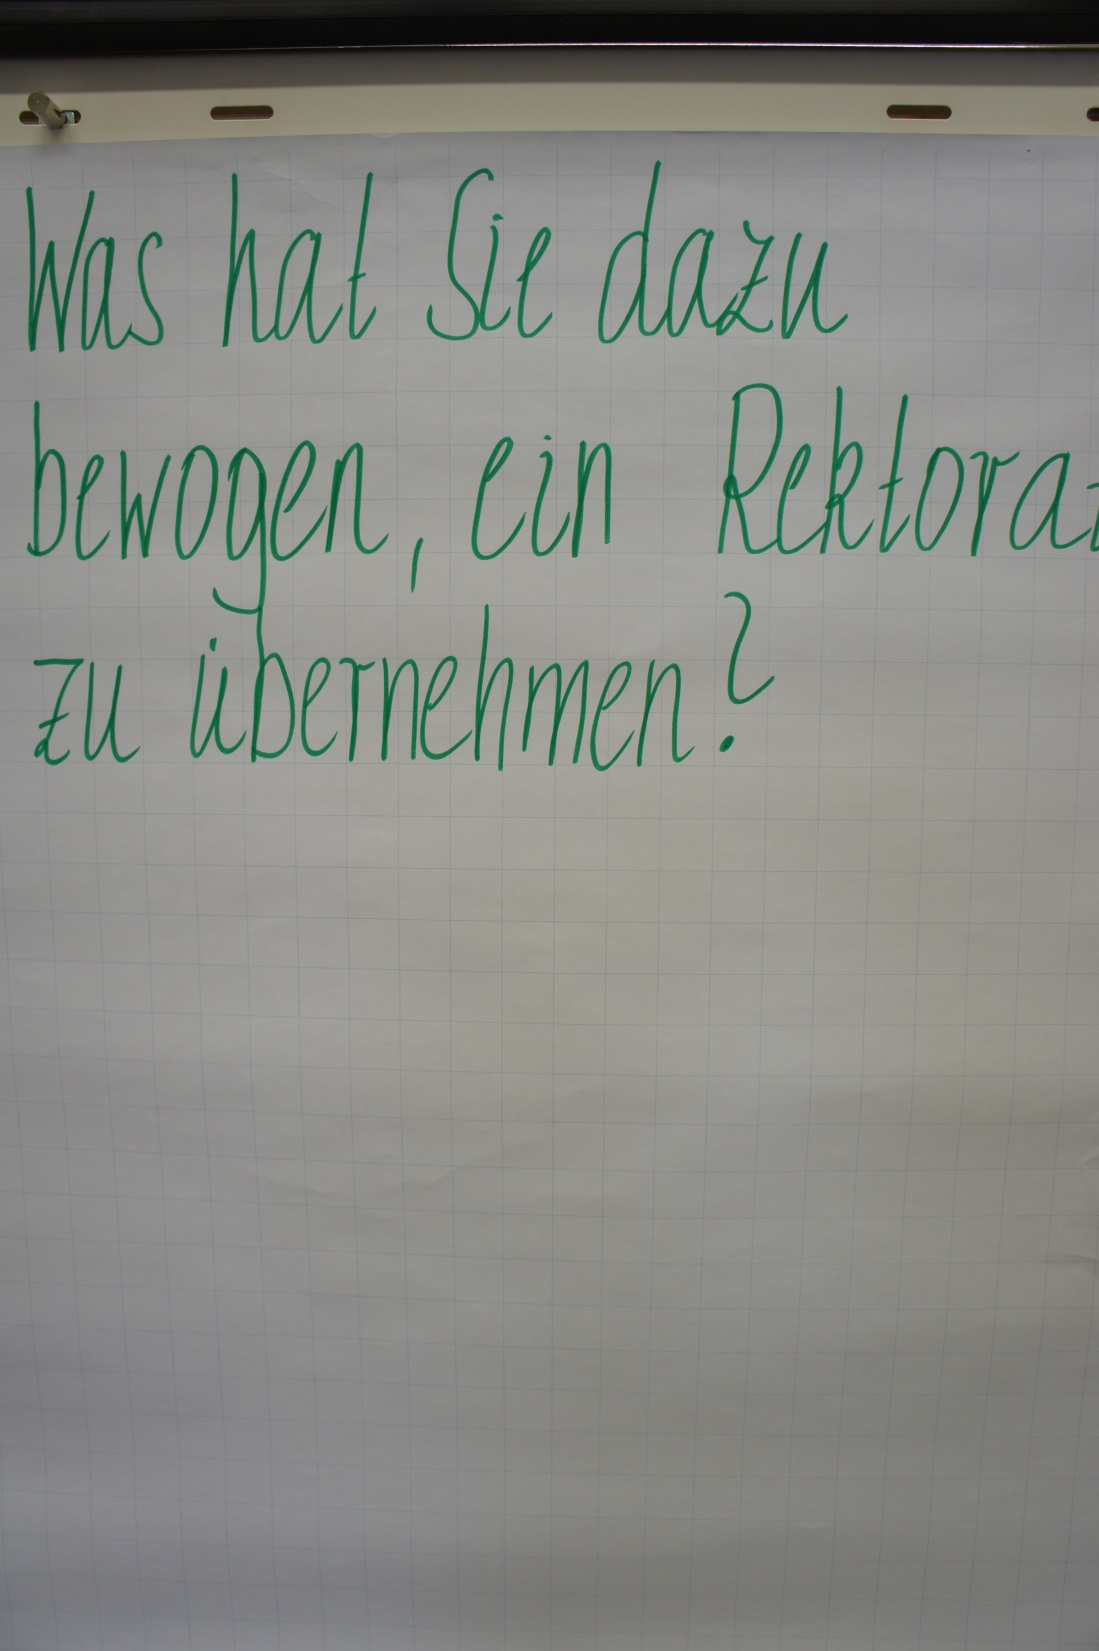 Was hat Sie dazu
bewogen, ein Rektorat
zu übernehmen?